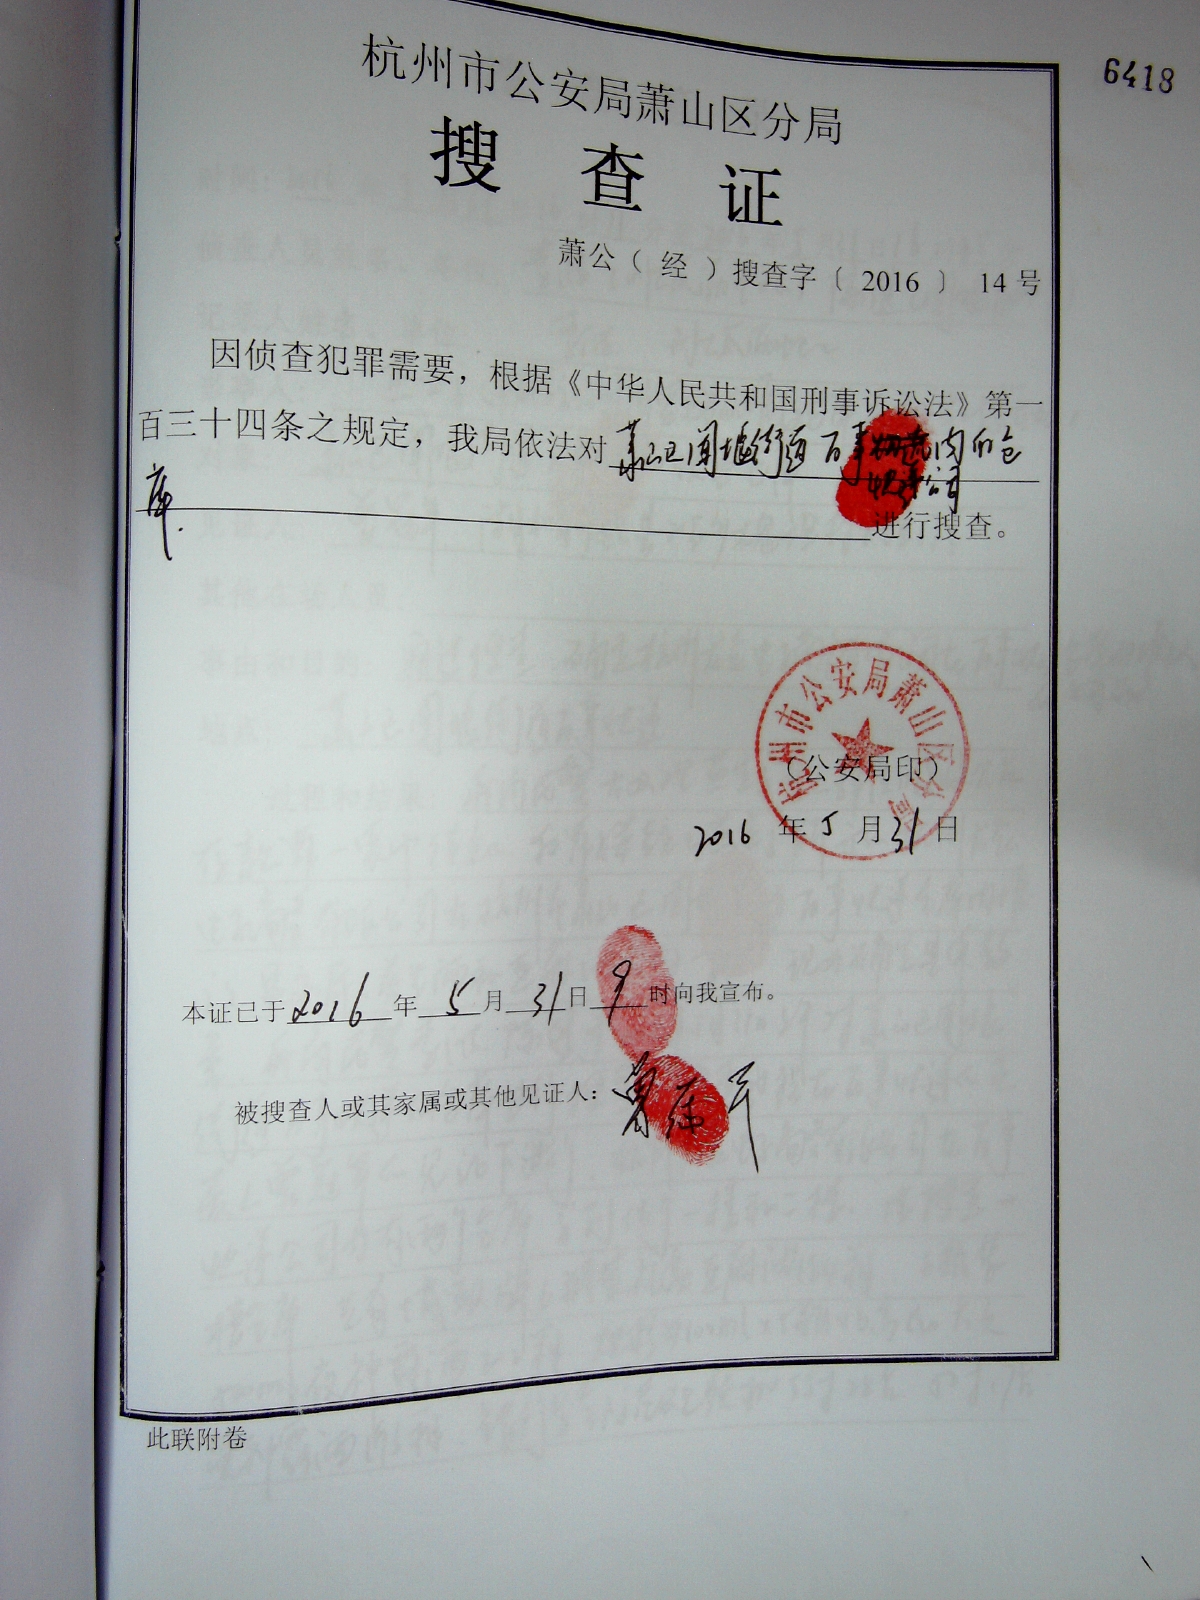 6418
杭州市公安局萧山区分局
搜查证
萧公（经）搜查字〔2016〕14号
因侦查犯罪需要，根据《中华人民共和国刑事诉讼法》第一
百三十四条之规定，我局依法对萧山区闻堰街道百事 内的仓
公司
库 进行搜查。
杭州市公安局萧山区分局
（公安局印）
2016年5月31日
本证已于2016年5月31日9时向我宣布。
被搜查人或其家属或其他见证人：
此联附卷